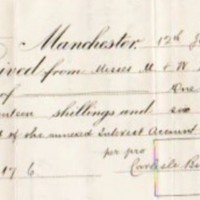 Manchester 12th J
ived from Messrs M & W
of One
nteen shillings and
t of the annexed Interest Account
per pro
17 6 Carlisle